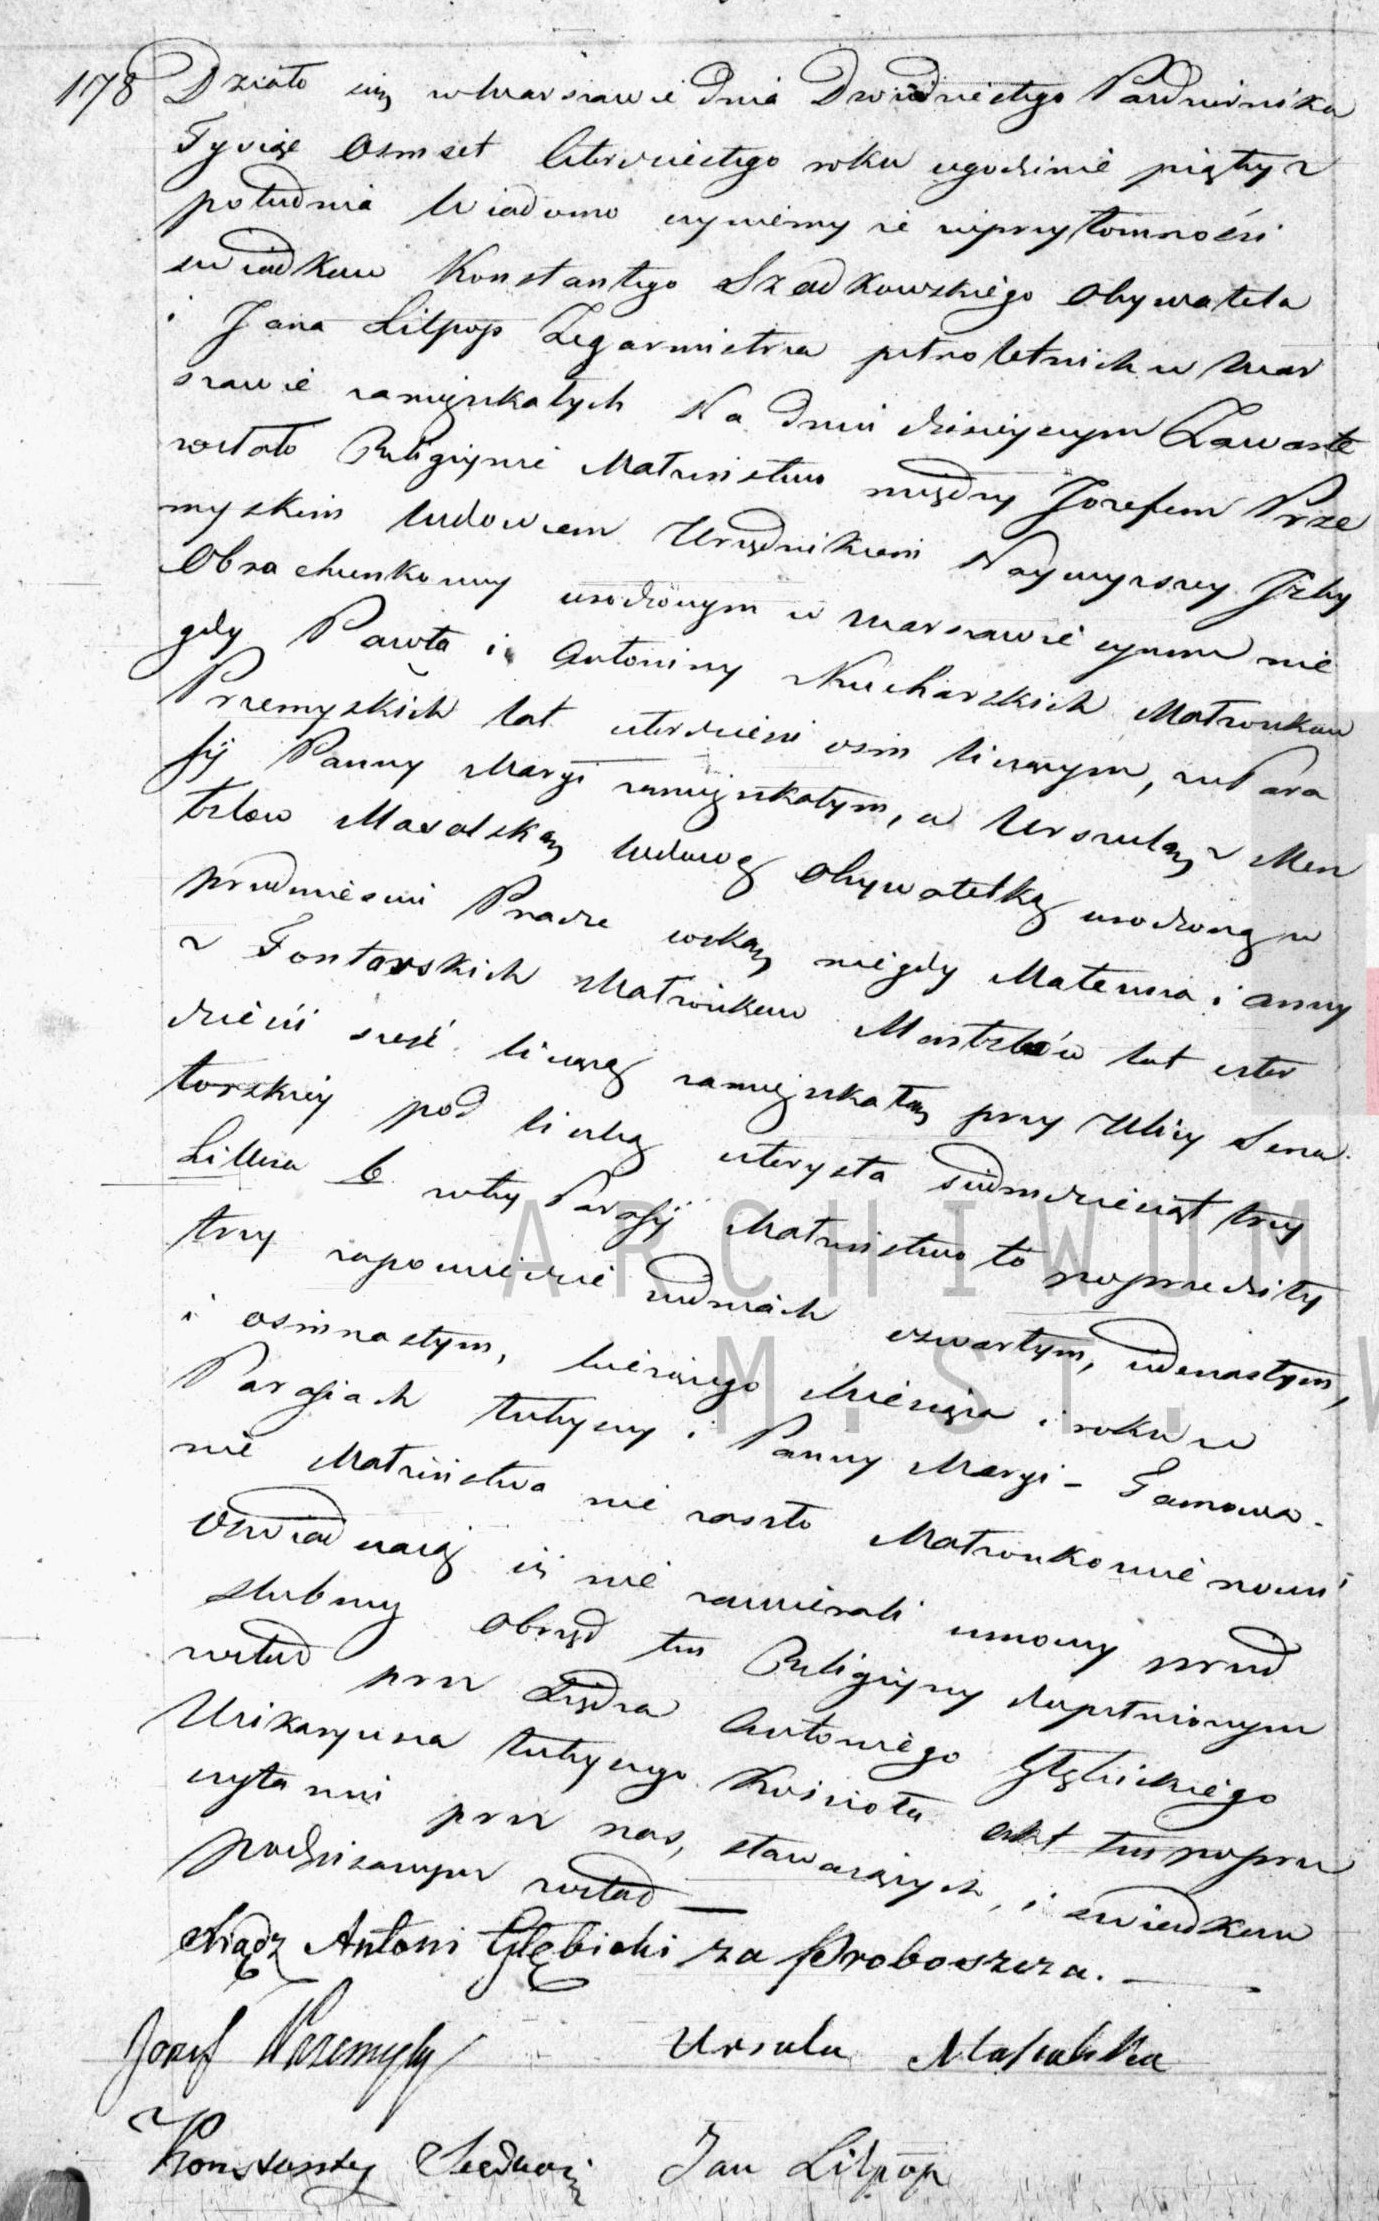 178 Działo się w Warszawie dnia Dwudziestego Października
Tysiąc Osmset czterdziestego roku o godzinie piątey z
południa Wiadomo czyniemy że w przytomności
swiadków Konstantego Szadkowskiego Obywatela
i Jana Lilpop Zegarmistrza pełnoletnich w War
szawie zamięszkałych Na dniu dzisieyszym Zawarte
zostało Religijne Małżeństwo między Jozefem Prze
myskim Wdowcem Urzędnikiem Naywyższey Izby
Obrachunkowey urodzonym w Warszawie synem nie
gdy Pawła i Antoniny Kucharskich Małżonków
Przemyskich lat czterdzieści osim liczącym, w Para
fij Panny Maryi zamięszkałym, a Urszulą z Men
tzlów Masalską Wdową Obywatelką urodzoną w
przedmieściu Pradze córką niegdy Mateusza i Anny
z Fontarskich Małżonków Mentzlów lat czter
dzieści sześć liczącą zamięszkałą przy Ulicy Sena
torskiey pod liczbą czterysta siedmdziesiąt trzy
Littera b w tey Parafij Małżeństwo to poprzedziły
trzy zapowiedzie w dniach czwartym, iedenastym,
i osimnastym, bieżącego Miesiąca i roku w
Parafiach tuteyszey i Panny Maryi – Tamowa
nie Małżeństwa nie zaszło Małżonkowie nowi
Oswiadczaią iż nie zawierali umowy przed
slubney Obrząd ten Religijny dopełnionym
został przez Xiędza Antoniego Głębickiego
Wikaryusza tuteyszego Kościoła Akt ten poprze
czytaniu przez nas, stawaiących, i swiadków
podpisanym został —
Xiądz Antoni Głębicki za Proboszcza. —
Jozef Przemyski Ursula Masalska
Konstanty Jan Lilpop
ARCHIWUM
M. ST. W